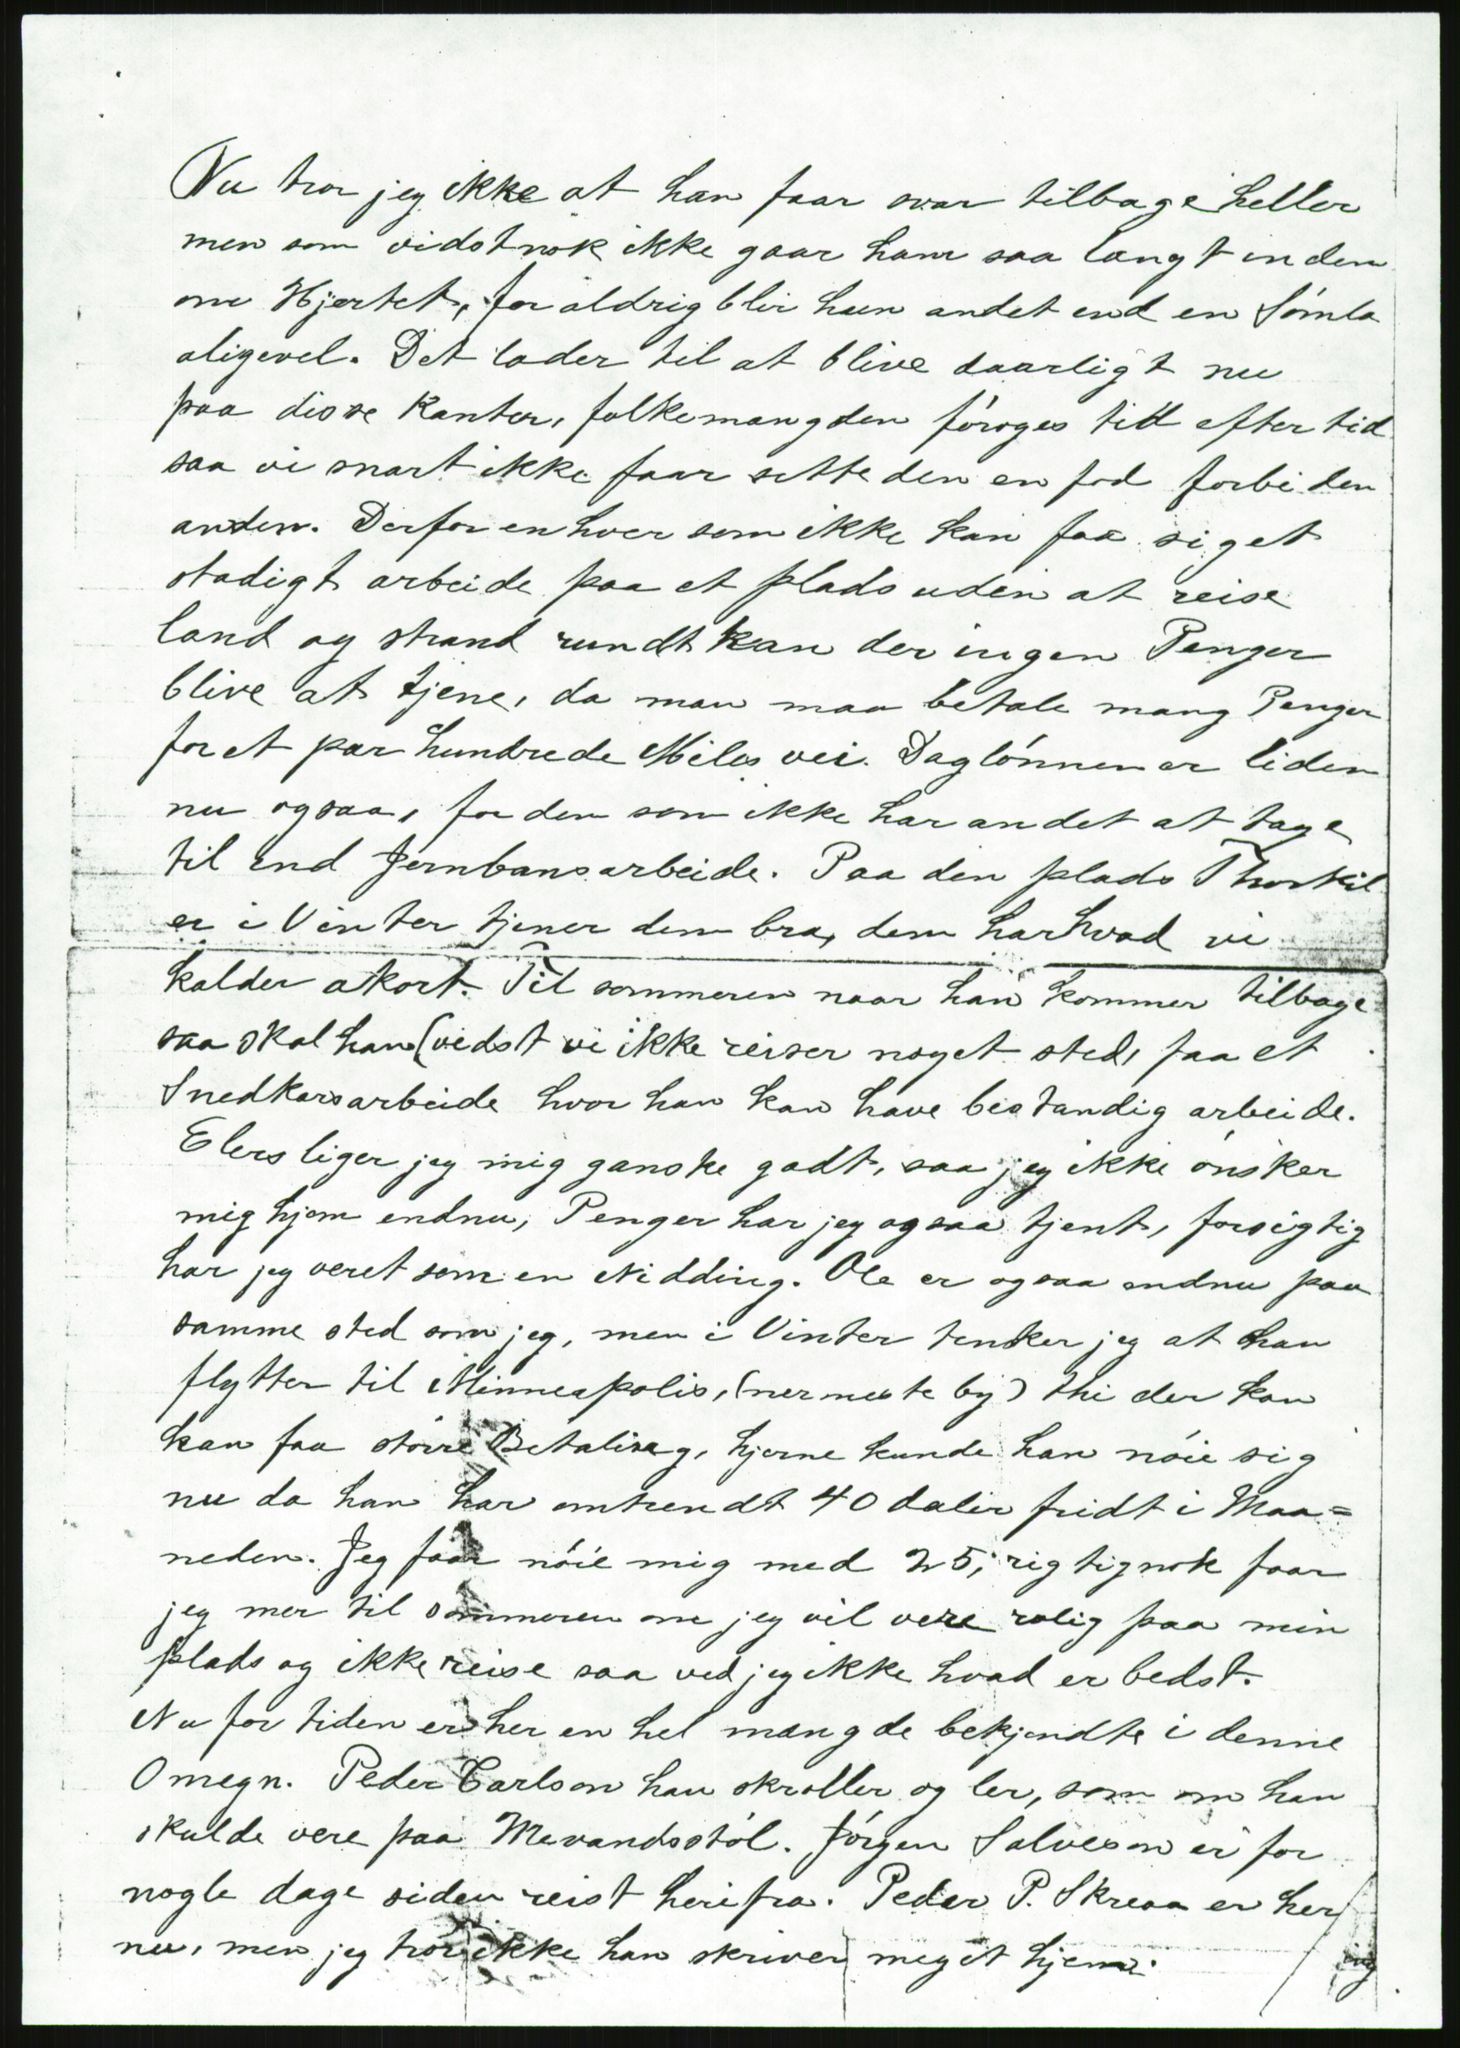 Nu tror jeg ikke at han faar svar tilbage heller
men som vidstnok ikke gaar ham saa langt inden
om Hjertet, for aldrig blir hun andet end en Sømla
aligevel. Det lader til at blive daarligt nu
paa disse Kanter, folkemangden forøges tid efter tid
saa vi snart ikke faar sette den en fod forbi den
anden. Derfor enhver som ikke kan faa sig et
stadigt arbeide paa et plads uden at reise
land og strand rundt kan der ingen Penger
blive at tjene, da man maa betale mang Penger
for et par hundrede Miles vei. Daglønnen er liden
nu ogsaa, for den som ikke har andet at tage
til end Jernbansarbeide. Paa den plads Thorkil
er i Vinter tjener dem bra, dem har hvad vi
kalder akort. Til sommeren naar han kommer tilbage
saa skal han (vidst vi ikke reiser noget sted, faa et
Snedkarsarbeide hvor han kan have bestandig arbeide.
Elers liger jeg mig ganske godt, saa jeg ikke ønsker
mig hjem endnu, Penger har jeg ogsaa tjent, forsigtig
har jeg veret som en Nidding. Ole er ogsaa endnu paa
samme sted som jeg, men i Vinter tenker jeg at han
flytter til Minneapolis, (nermeste by) thi der kan
han faa større Betaling, hjerne kunde han nøie sig
nu da han har omtrendt 40 daler fridt i Maa=
neden. Jeg faar nøie mig med 25, rigtignok faar
jeg mer til sommeren om jeg vil vere rolig paa min
plads og ikke reise saa ved jeg ikke hvad er bedst.
Nu for tiden er her en hel mængde bekjendte i denne
Omegn. Peder Carlson han skraller og ler, som om han
skulde vere paa Mevandsstøl. Jørgen Salveson er for
nogle dage siden reist herifra. Peder P. Skreaa er her
nu, men jeg tror ikke han skriver meget hjem.